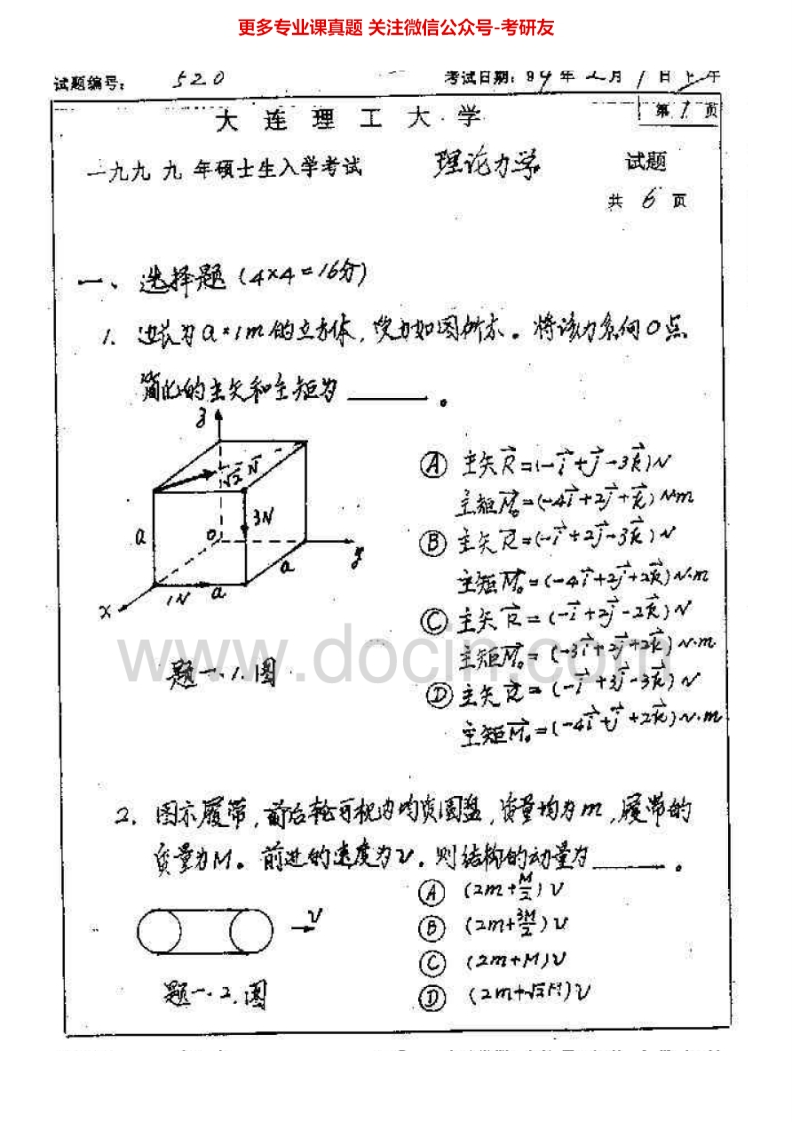 更多专业课真题 关注微信公众号-考研友
试题编号: 520 考试日期: 99年2月1日下午
大连理工大学 第1页
一九九九年硕士生入学考试 理论力学 试题
共6页
一、选择题(4×4=16分)
1. 边长为a=1m的立方体,受力如图所示。将该力系向O点
简化的主矢和主矩为______。
z
√2N
3N
a
O
y
a
x
1N
a
题一.1.图
Ⓐ 主矢R⃗=(-i⃗+j⃗-3k⃗)N
主矩M⃗₀=(-4i⃗+2j⃗+k⃗)N·m
Ⓑ 主矢R⃗=(-i⃗+2j⃗-3k⃗)N
主矩M⃗₀=(-4i⃗+2j⃗+2k⃗)N·m
Ⓒ 主矢R⃗=(-i⃗+2j⃗-2k⃗)N
主矩M⃗₀=(-3i⃗+2j⃗+2k⃗)N·m
Ⓓ 主矢R⃗=(-i⃗+3j⃗-3k⃗)N
主矩M⃗₀=(-4i⃗+j⃗+2k⃗)N·m
www.docin.com
2. 图示履带,前后轮可视为均质圆盘,质量均为m,履带的
质量为M。前进的速度为v.则结构的动量为______。
v
题一.2.图
Ⓐ (2m+M/2)v
Ⓑ (2m+3M/2)v
Ⓒ (2m+M)v
Ⓓ (2m+√2M)v